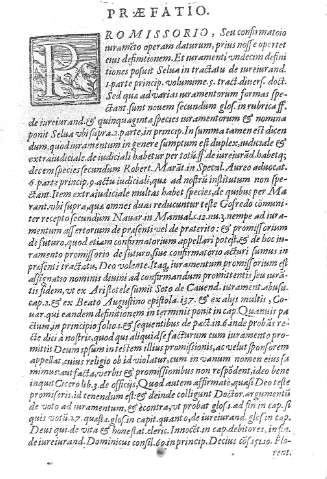 PRÆFATIO.
PROMISSORIO, Seu confirmatoio
iuramēto operam daturum, prius nosse oportet
eius definitionem. Et iuramenti vndecim defini
tiones posuit Selua in tractatu de iureiurand.
1. parte princip. volumine 5. tract. diuers. doct.
Sed quia ad varias iuramentorum formas spe
ctant. sunt nouem secundum glos. in rubrica ff.
de iureiurand. & quinquaginta species iuramentorum & nomina
ponit Selua vbi supra 2. parte, in princip. In summa tamen est dicen
dum, quod iuramentum in genere sumptum est duplex, iudiciale &
extraiudiciale. de iudiciali habetur per totū ff. de iureiurād. habetq;
decem species secundum Robert. Marāt. in Specul. Aureo aduocat.
6. parte princip. 9. actu iudiciali, qua ad nostrū institutum non spe-
ctant. Iteē extraiudiciale multas habet species, de quibus per Ma
rant. vbi supra, quæ omnes duas reducuntur teste Gofredo commūni
ter recepto secundum Nauar in Manual. c. 12. nu. 3. nempe ad iura-
mentum assertorium de præsenti vel de praterito: & promissorium
de futuro, quod etiam confirmatorium appellari potest, & de hoc iu-
ramento promissorio de futuro, siue confirmatorio acturi sumus in
præsenti tractatu, Deo volente. Itaq; iuramentum promissorium est
assignatio nominis diuini ad confirmandum promittentis seu iurā-
tis fidem, vt ex Aristotele sumit Soto de Cauend. iurament. abusu.
cap. 2. & ex Beato Augustino epistola. 137. & ex alijs multis, Co-
uar. qui eandem definitionem in terminis ponit in cap. Quamuis pa
ctum, in principio folio 1. & sequentibus de pact. in 6. vnde probari re-
cte dici à nostris, quod qui aliquid se facturum cum iuramento pro-
mittis Deum ipsum in testem illius promissionis, ac velut sponsorem
appellat, cuius religio ob id violatur, cum in vanum nomen eius sa
mimus aut facta, verbis & promissionibus non respōdent, ideo bene
inquit Cicero lib. 3. de officijs, Quod autem affirmate, quasi Deo teste
promiseris, id tenendum est: & deinde colligunt Doctor. argumentū
de voto ad iuramentum, & econtra, vt probat glos. 1. ad fin in cap. si
quis votū 27. quæst. 1. glos. in cap. quanto, de iureiurand. glos. in cap.
Deus qui de vita & honestat. cleric. Innocēt. in cap. debitores, in fi.
de iureiurand. Dominicus consil. 69. in princip. Decius conf. 510. Flo-
rent.